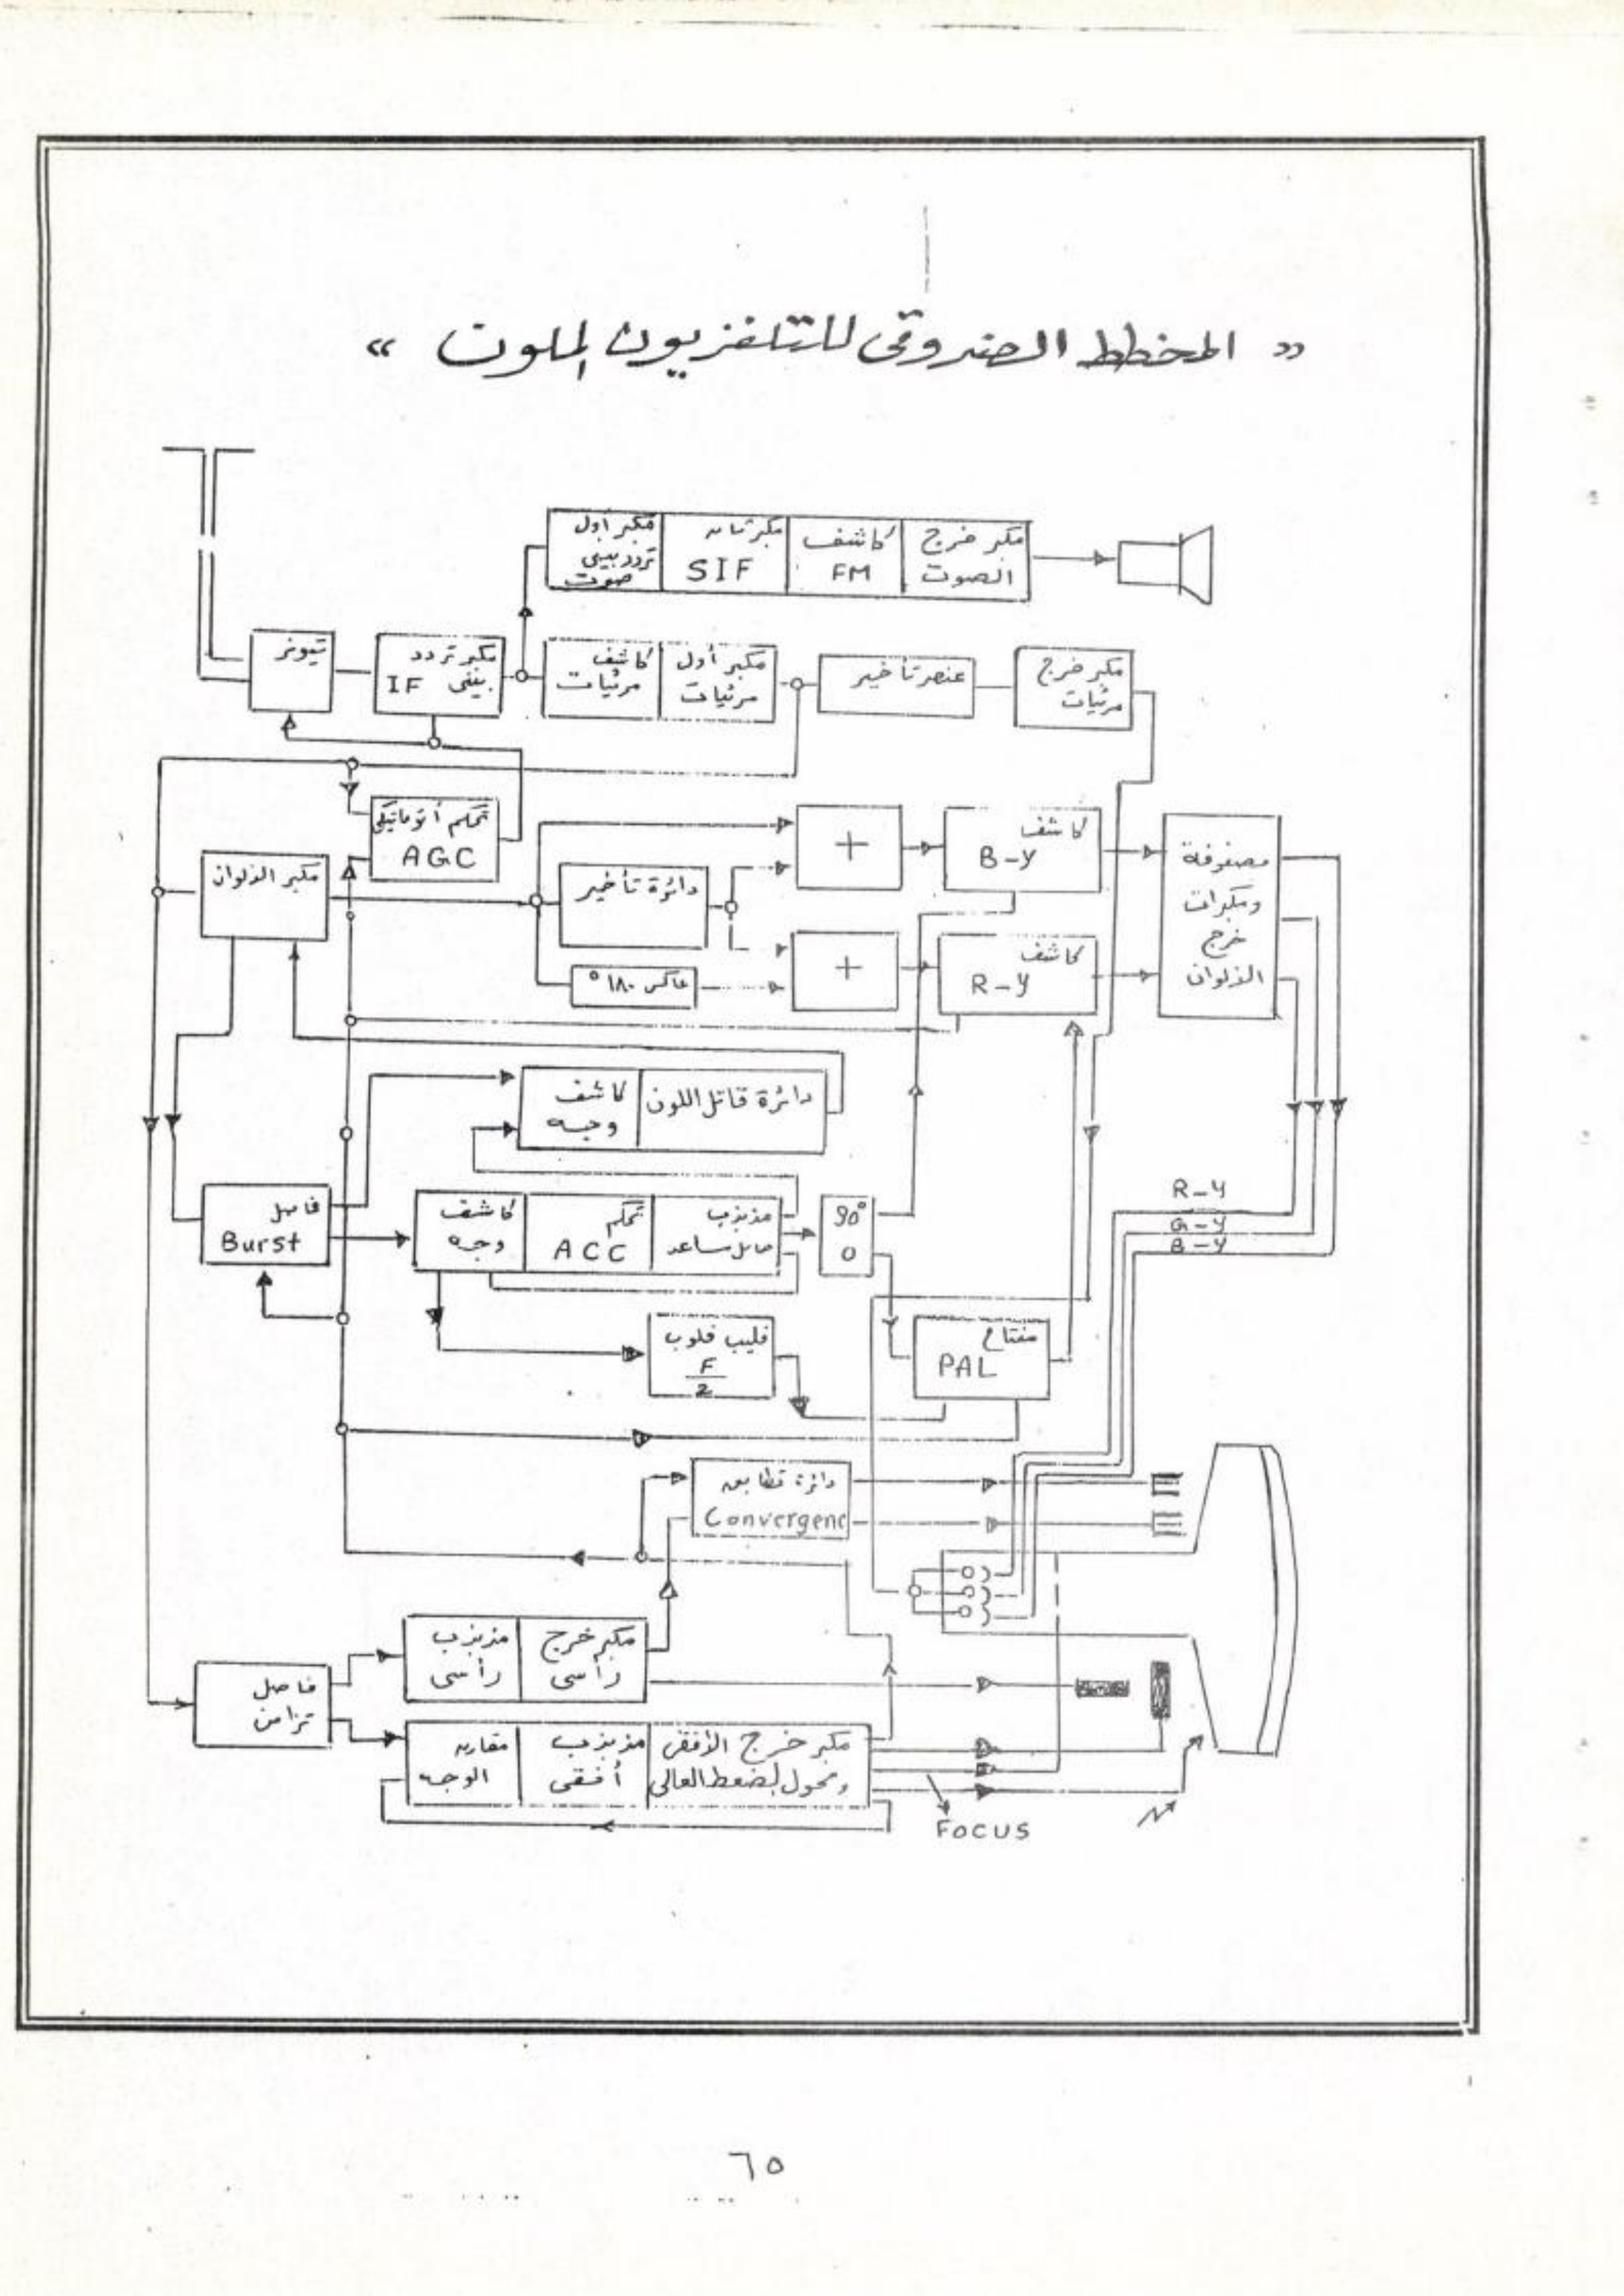 « المخطط الصندوقى للتلفزيون الملون »
مكبر أول
تردد بينى
صوت
مكبر ثان
SIF
كاشف
FM
مكبر خرج
الصوت
تيونر
مكبر تردد
بينى IF
كاشف
مرئيات
مكبر أول
مرئيات
عنصر تأخير
مكبر خرج
مرئيات
تحكم أتوماتيكى
AGC
مكبر الألوان
دائرة تأخير
عاكس ١٨٠°
+
+
كاشف
B-Y
كاشف
R-Y
مصفوفة
ومكبرات
خرج
الألوان
كاشف
وجه
دائرة قاتل اللون
فاصل
Burst
كاشف
وجه
تحكم
ACC
مذبذب
حامل مساعد
90°
0
R-Y
G-Y
B-Y
فليب فلوب
F
2
مفتاح
PAL
دائرة تطابق
Convergenc
فاصل
تزامن
مذبذب
رأسى
مكبر خرج
رأسى
مقارنه
الوجه
مذبذب
أفقى
مكبر خرج الأفقى
ومحول لضغط العالى
FOCUS
٦٥